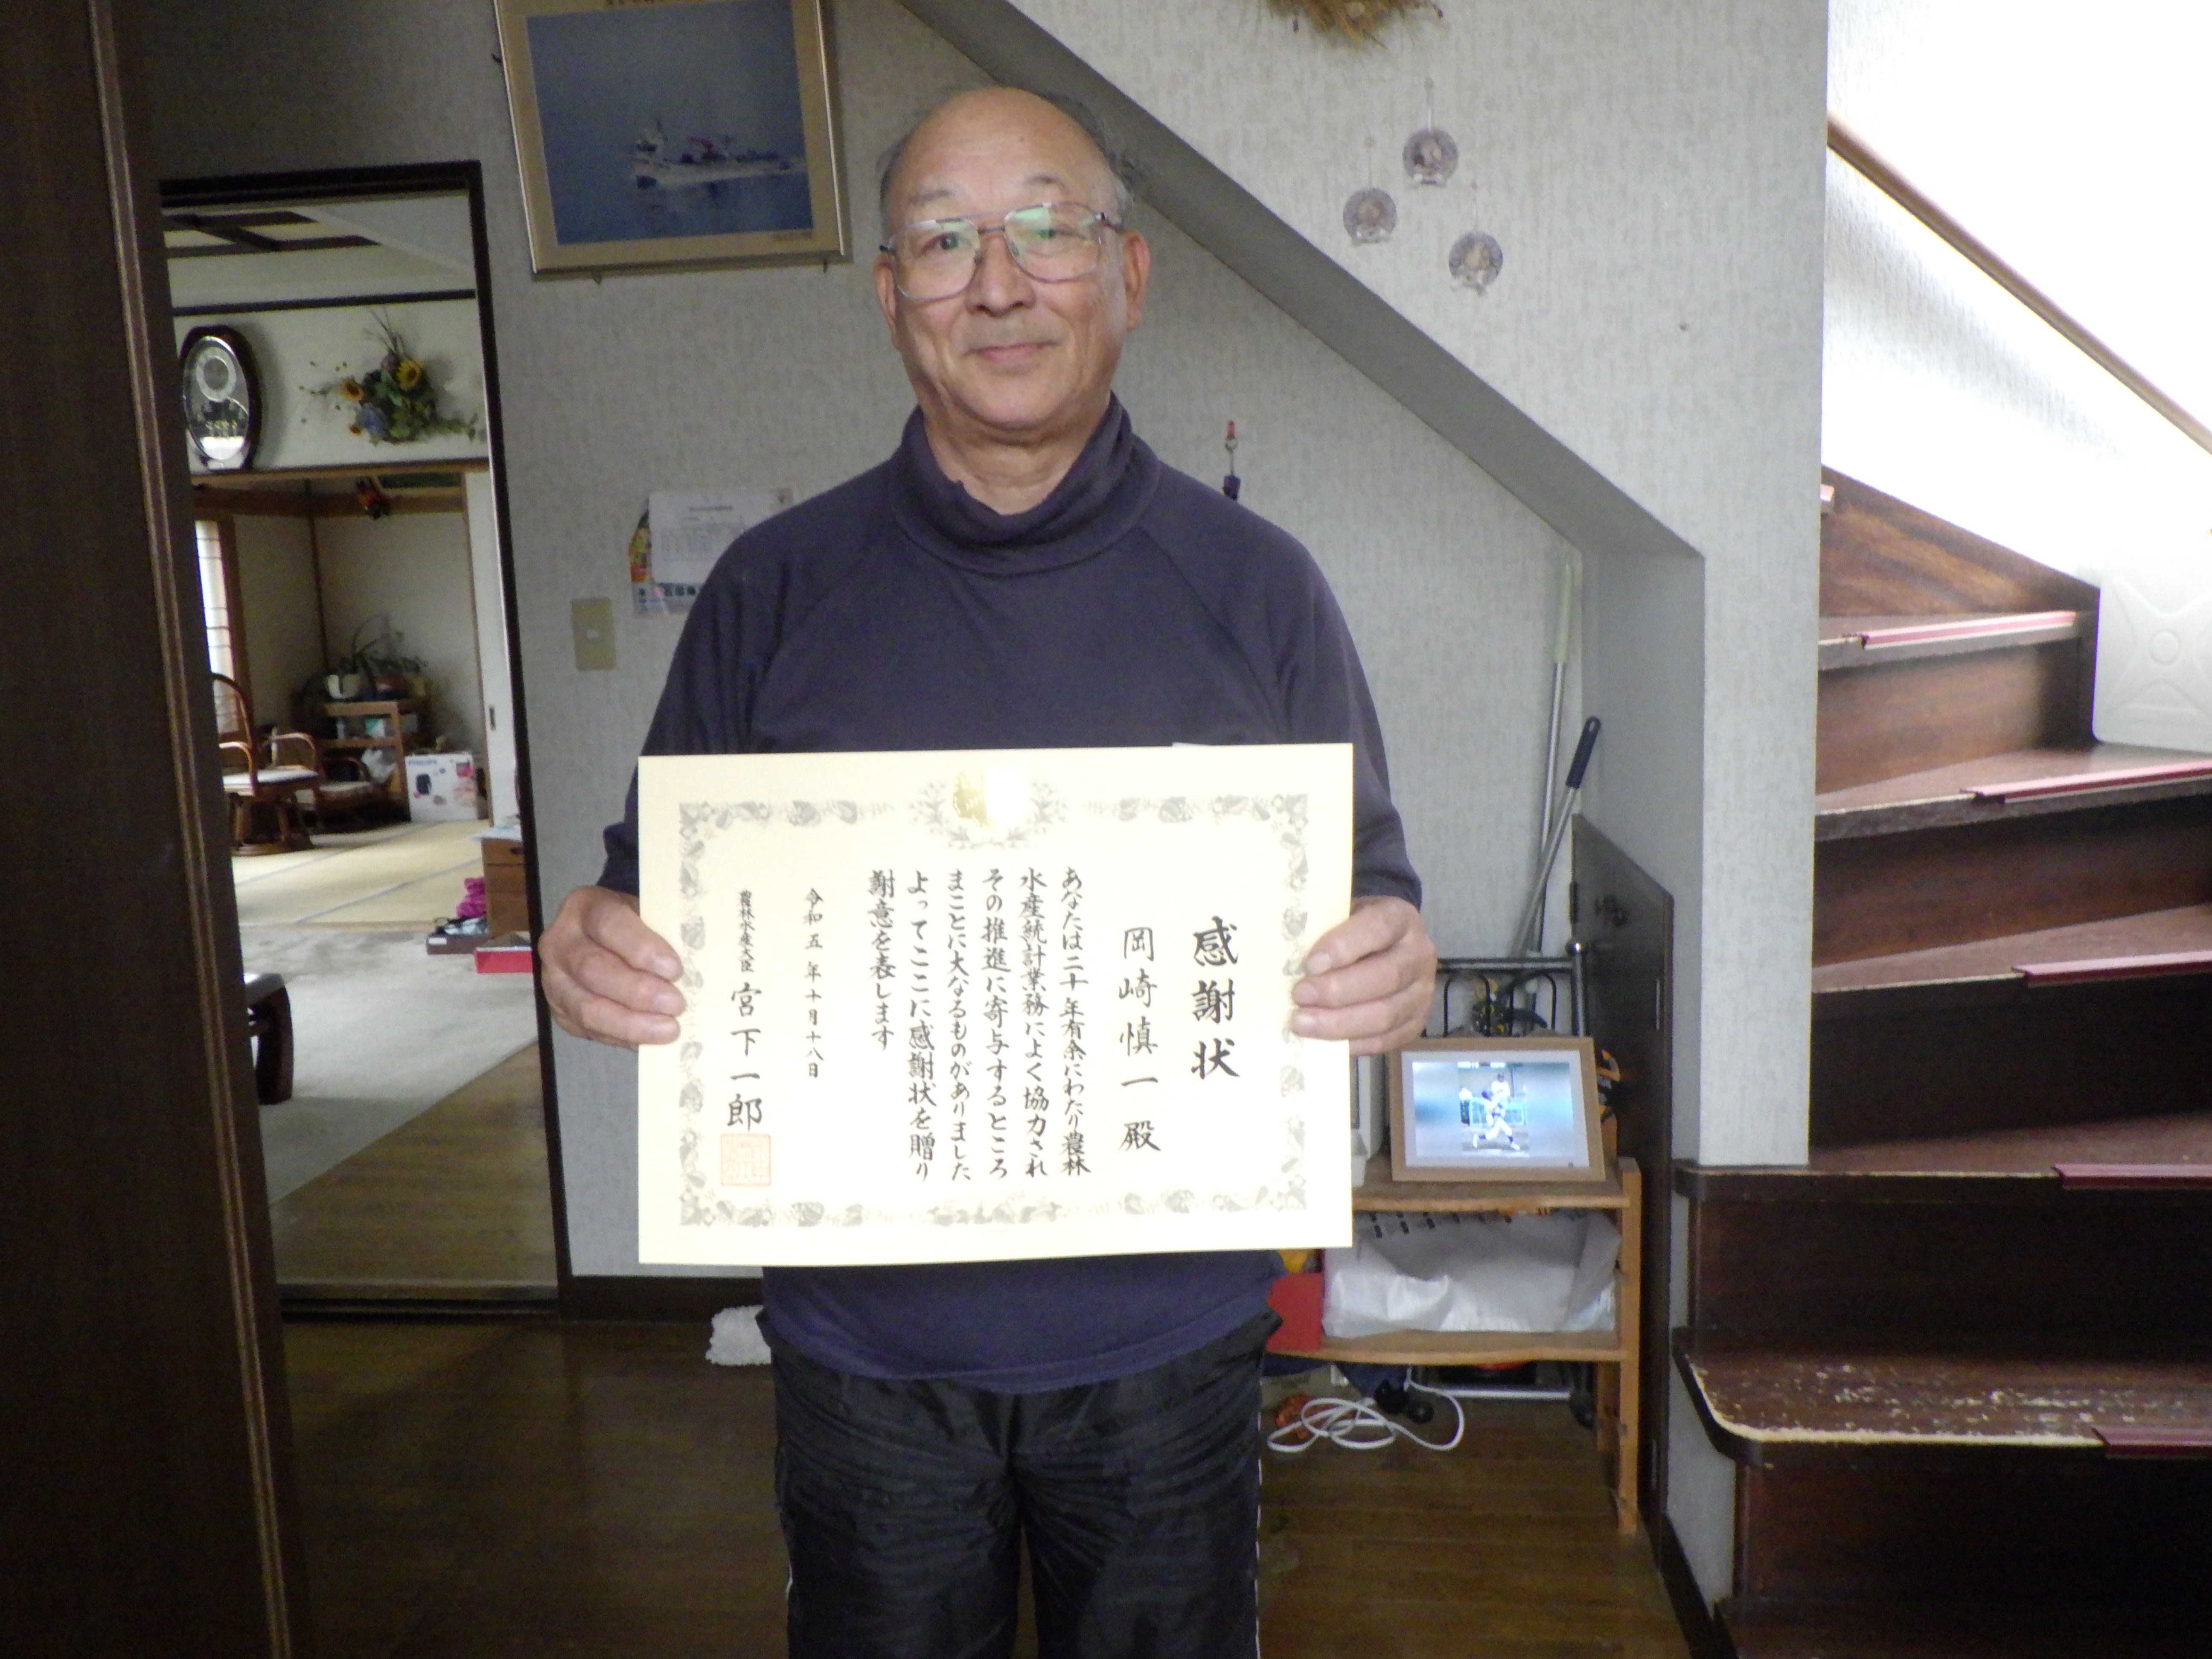 感謝状
岡崎慎一殿
あなたは二十年有余にわたり農林
水産統計業務によく協力され
その推進に寄与するところ
まことに大なるものがありました
よってここに感謝状を贈り
謝意を表します
令和五年十月十八日
農林水産大臣 宮下一郎
PHILIPS